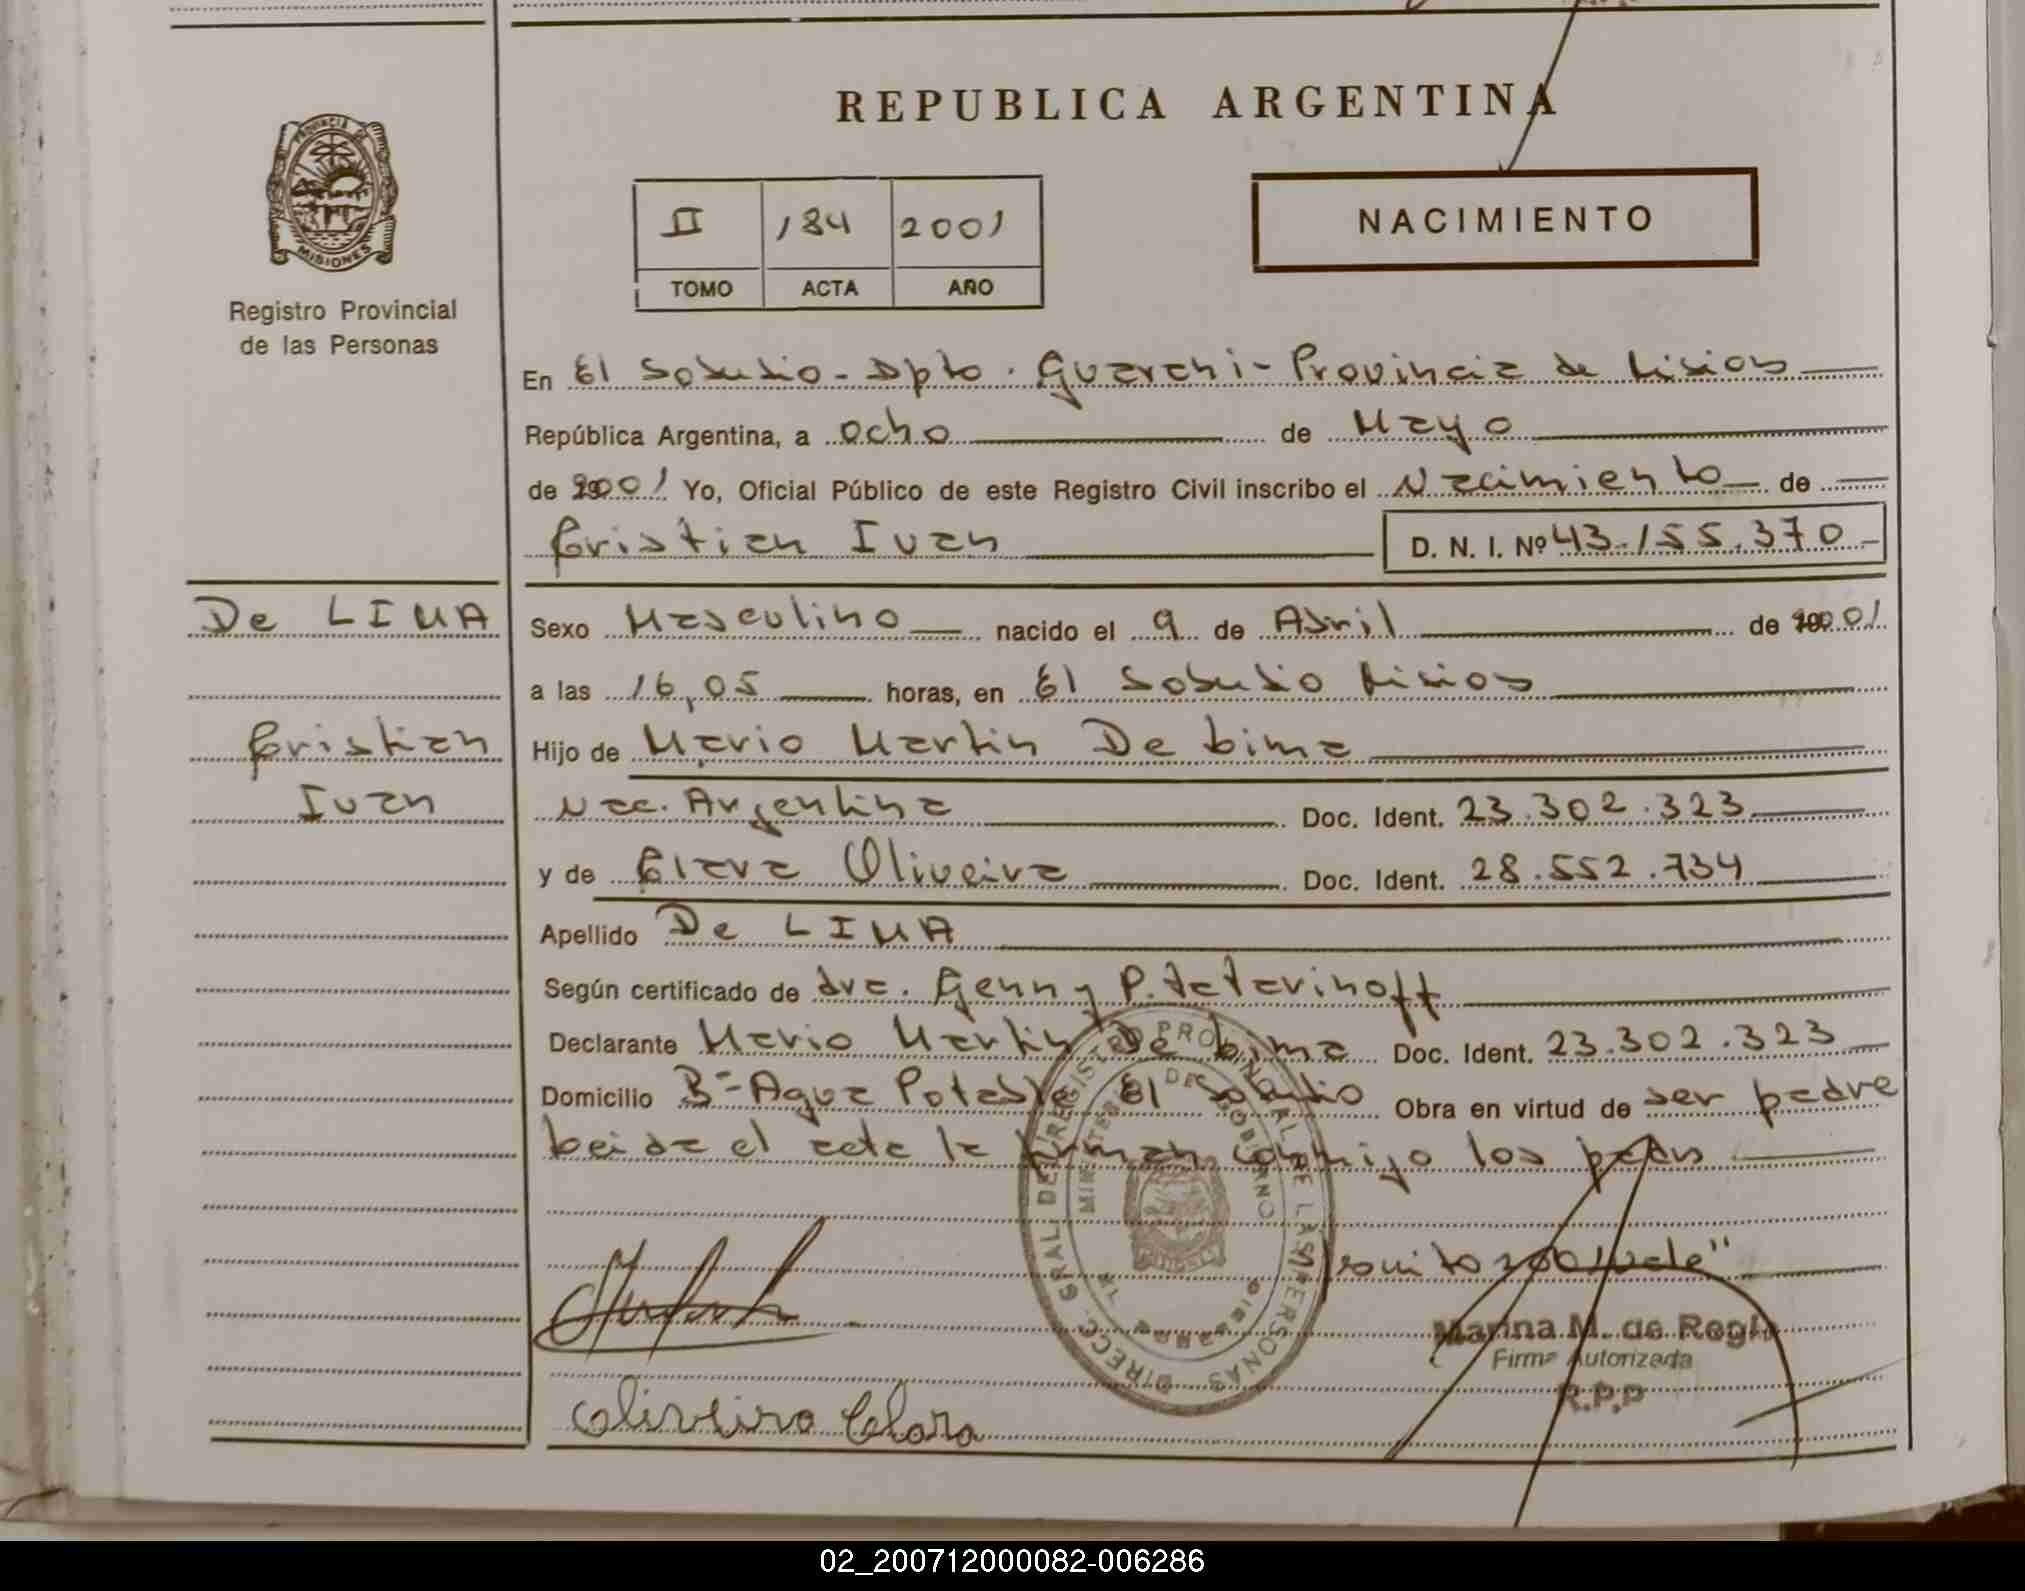 REPUBLICA ARGENTINA
PROVINCIA DE
MISIONES
Registro Provincial
de las Personas
II 184 2001
TOMO ACTA AÑO
NACIMIENTO
En El Soberbio - Dpto. Guarani - Provincia de Misiones
República Argentina, a ocho de Mayo
de 2001 Yo, Oficial Público de este Registro Civil inscribo el Nacimiento de
Cristian Ivan D. N. I. Nº 43.155.370
De LIMA
Cristian
Ivan
Sexo Masculino nacido el 9 de Abril de 2001
a las 16,05 horas, en El Soberbio Misiones
Hijo de Mario Martin De Lima
Nac. Argentina Doc. Ident. 23.302.323
y de Clara Oliveira Doc. Ident. 28.552.734
Apellido De LIMA
Según certificado de dra. Genny P.
Declarante Mario Martin De Lima Doc. Ident. 23.302.323
Domicilio Bº Agua Potable El Soberbio Obra en virtud de ser padre
Leida el acta la firman conmigo los padres
2001 vale"
DIRECC. GRAL DEL REGISTRO PROVINCIAL DE LAS PERSONAS
MINISTERIO DE GOBIERNO
Marina M. de Regis
Firma Autorizada
R.P.P
Oliveira Clara
02_200712000082-006286